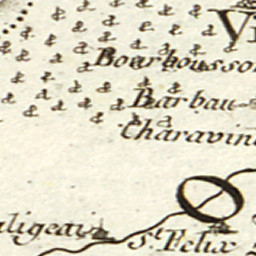 Vi
Bourboussou
Barbau-
Charavin
aligeais
St. Felix